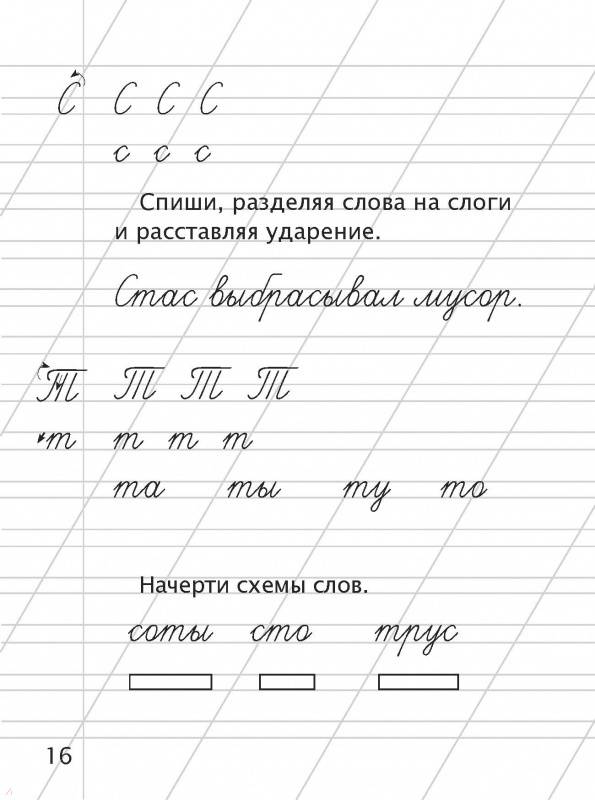 С С С С
с с с
Спиши, разделяя слова на слоги
и расставляя ударение.
Стас выбрасывал мусор.
Т Т Т Т
т т т т
та ты ту то
Начерти схемы слов.
соты сто трус
16